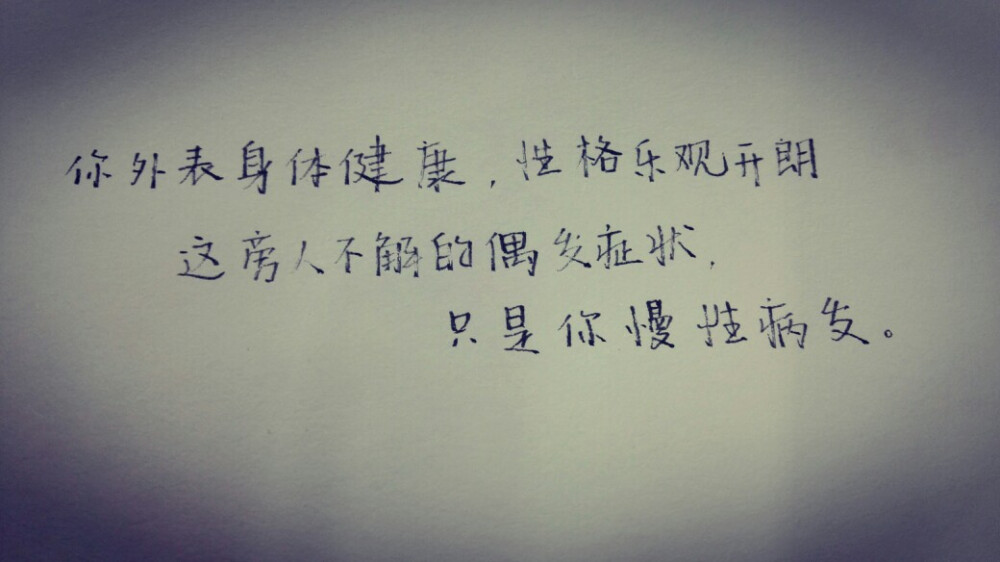 你外表身体健康，性格乐观开朗
这旁人不解的偶发症状，
只是你慢性病发。